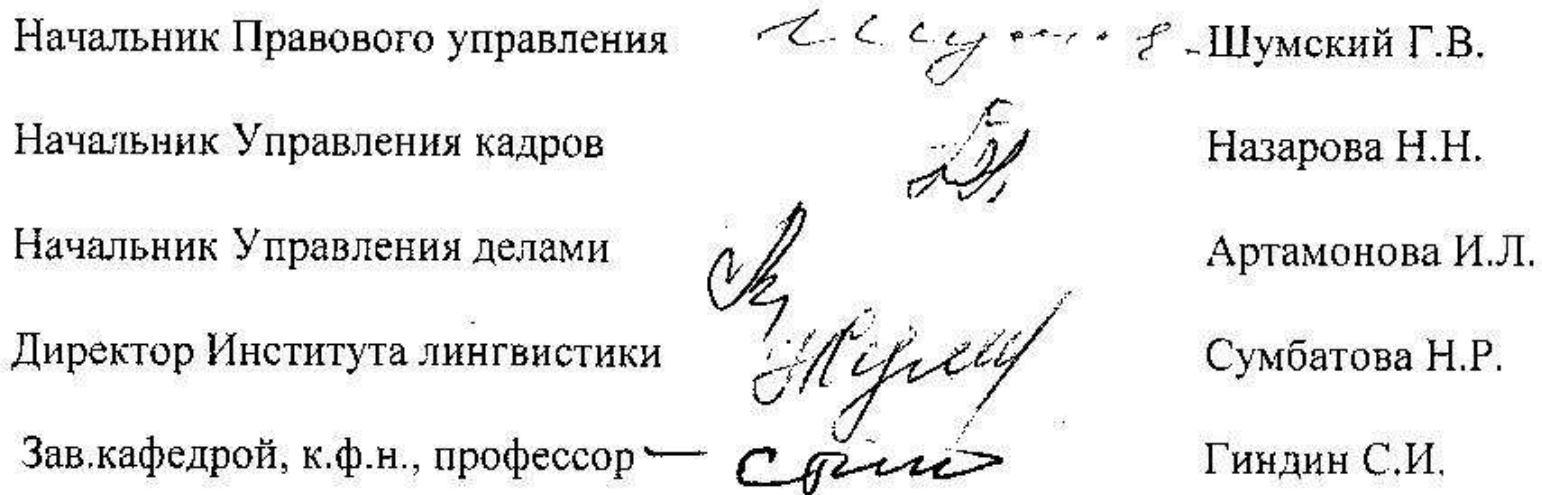 Начальник Правового управления Шумский Г.В.
Начальник Управления кадров Назарова Н.Н.
Начальник Управления делами Артамонова И.Л.
Директор Института лингвистики Сумбатова Н.Р.
Зав.кафедрой, к.ф.н., профессор Гиндин С.И.